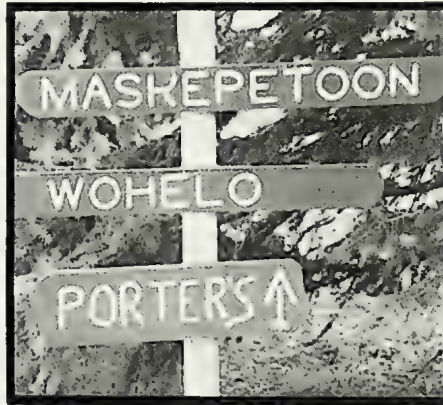 MASKEPETOON
WOHELO
PORTER'S ↑